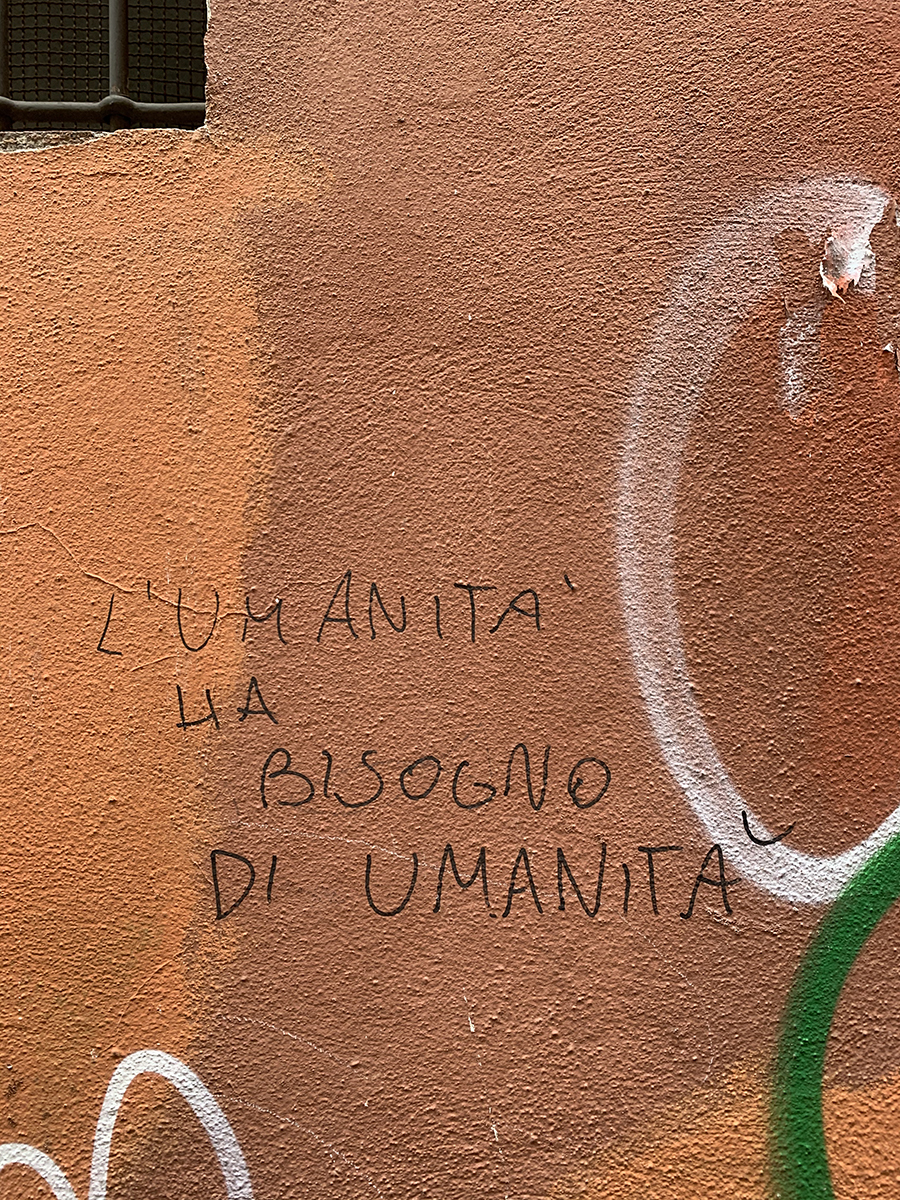 L'UMANITA'
HA
BISOGNO
DI UMANITÀ